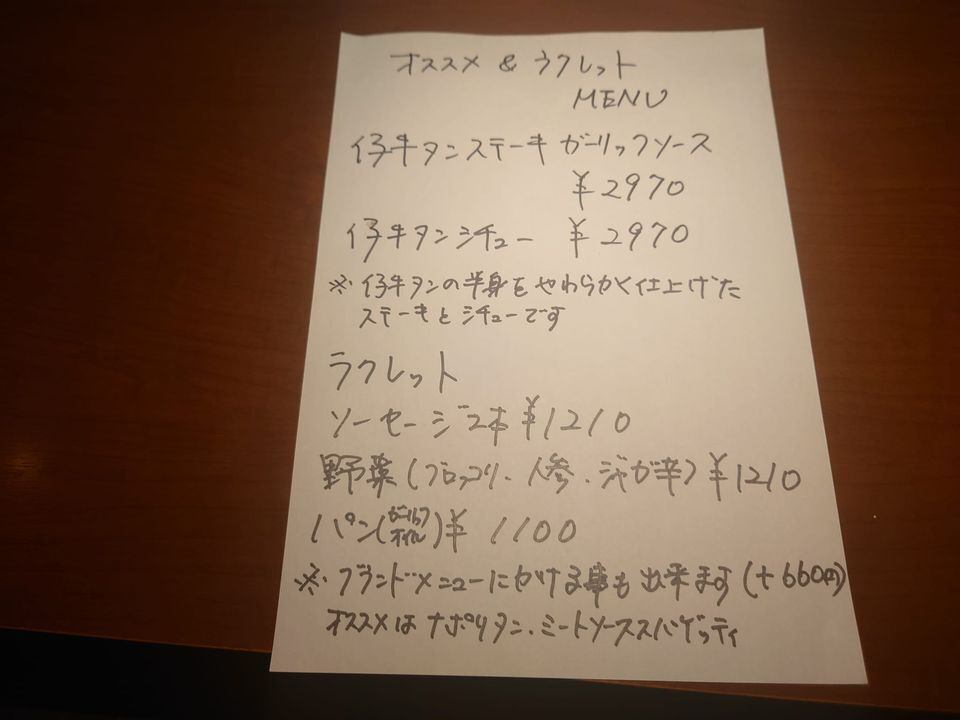 オススメ & ラクレット
MENU
仔牛タンステーキ ガーリックソース
¥2970
仔牛タンシチュー ¥2970
※仔牛タンの半身をやわらかく仕上げた
ステーキとシチューです
ラクレット
ソーセージ2本 ¥1210
野菜(ブロッコリ、人参、ジャガ芋) ¥1210
パン(ガーリックオイル) ¥1100
※グランドメニューにかける事も出来ます(+660円)
オススメはナポリタン、ミートソーススパゲッティ